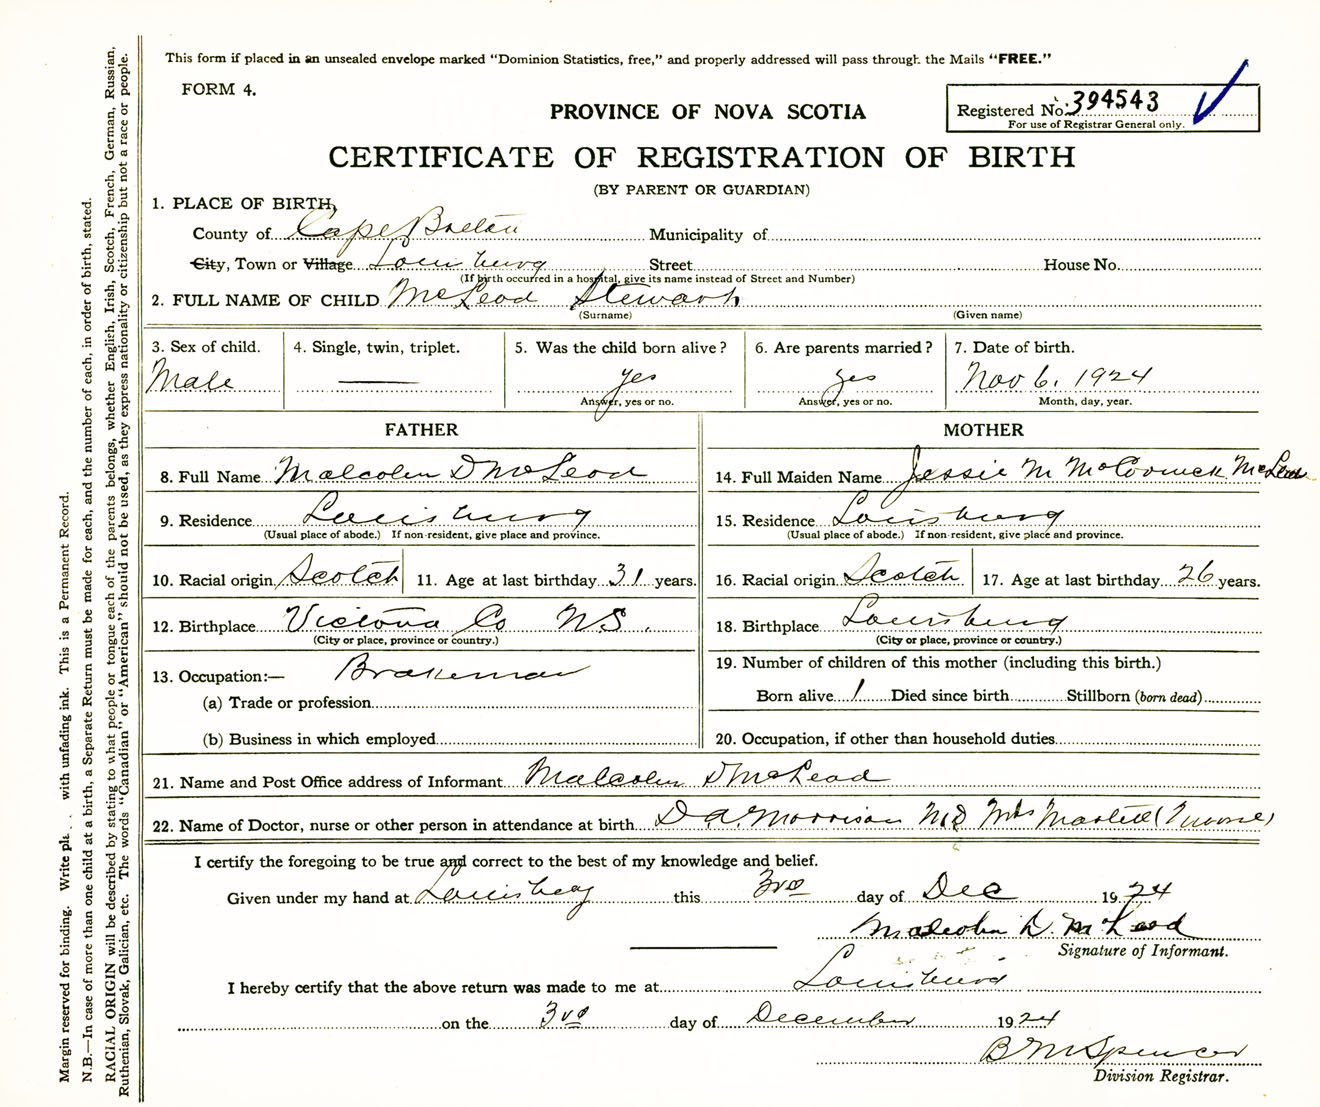 This form if placed in an unsealed envelope marked "Dominion Statistics, free," and properly addressed will pass through the Mails "FREE."
FORM 4.
PROVINCE OF NOVA SCOTIA
Registered No. 394543
For use of Registrar General only.
CERTIFICATE OF REGISTRATION OF BIRTH
(BY PARENT OR GUARDIAN)
1. PLACE OF BIRTH,
County of Cape Breton Municipality of
City, Town or Village Louisburg Street House No.
(If birth occurred in a hospital, give its name instead of Street and Number)
2. FULL NAME OF CHILD McLeod Stewart
(Surname) (Given name)
3. Sex of child. 4. Single, twin, triplet. 5. Was the child born alive? 6. Are parents married? 7. Date of birth.
Male — yes yes Nov 6, 1924
Answer, yes or no. Answer, yes or no. Month, day, year.
FATHER
8. Full Name Malcolm D McLeod
9. Residence Louisburg
(Usual place of abode.) If non-resident, give place and province.
10. Racial origin Scotch 11. Age at last birthday 31 years.
12. Birthplace Victoria Co N.S.
(City or place, province or country.)
13. Occupation:— Brakeman
(a) Trade or profession
(b) Business in which employed
MOTHER
14. Full Maiden Name Jessie M McCormick McLeod
15. Residence Louisburg
(Usual place of abode.) If non-resident, give place and province.
16. Racial origin Scotch 17. Age at last birthday 26 years.
18. Birthplace Louisburg
(City or place, province or country.)
19. Number of children of this mother (including this birth.)
Born alive 1 Died since birth Stillborn (born dead)
20. Occupation, if other than household duties
21. Name and Post Office address of Informant Malcolm D McLeod
22. Name of Doctor, nurse or other person in attendance at birth D A. Morrison M.D Mrs
I certify the foregoing to be true and correct to the best of my knowledge and belief.
Given under my hand at Louisburg this 3rd day of Dec 1924
Malcolm D. McLeod
Signature of Informant.
I hereby certify that the above return was made to me at Louisburg
on the 3rd day of December 1924
B M Spencer
Division Registrar.
Margin reserved for binding. Write with unfading ink. This is a Permanent Record.
N.B.—In case of more than one child at a birth, a Separate Return must be made for each, and the number of each, in order of birth, stated.
RACIAL ORIGIN will be described by stating to what people or tongue each of the parents belongs, whether English, Irish, Scotch, French, German, Russian,
Ruthenian, Slovak, Galician, etc. The words "Canadian" or "American" should not be used, as they express nationality or citizenship but not a race or people.